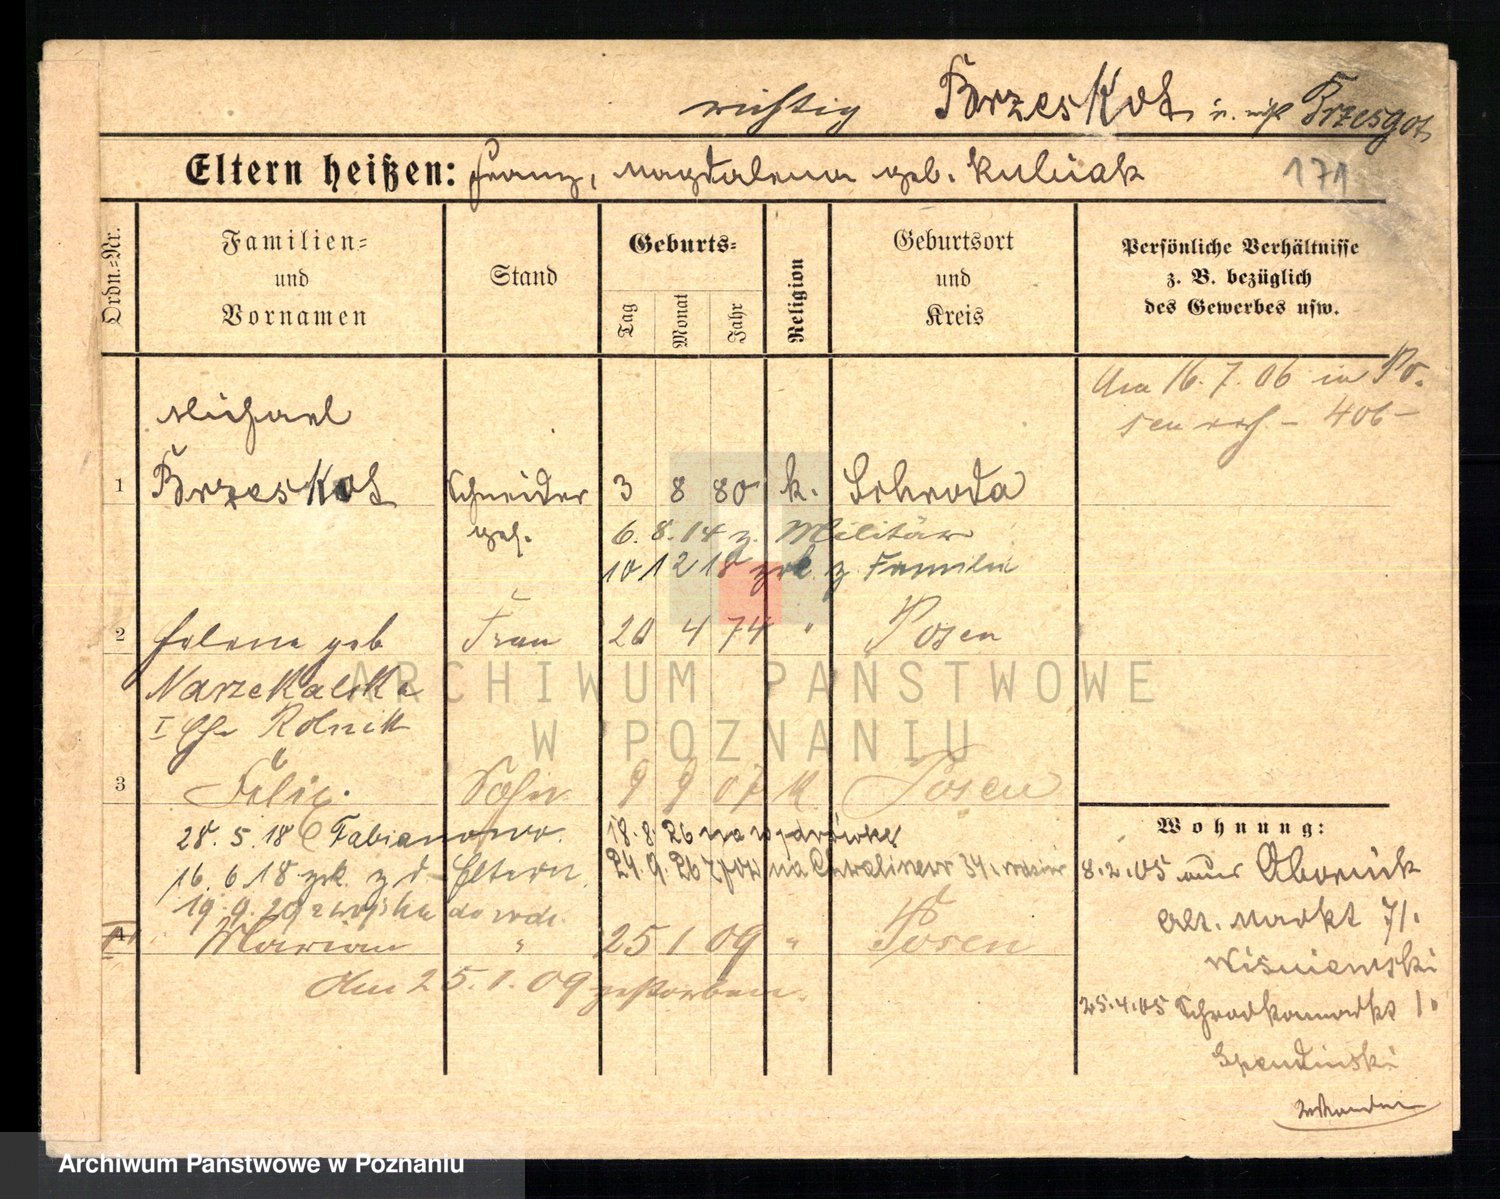 richtig Brzeskot u. nicht Brzesgot
Eltern heißen: Franz, Magdalena geb. Kubiak
171
Ordn.=Nr.
Familien=
und
Vornamen
Stand
Geburts=
Tag
Monat
Jahr
Religion
Geburtsort
und
Kreis
Persönliche Verhältnisse
z. B. bezüglich
des Gewerbes usw.
Am 16. 7. 06 in Po-
sen verh. - 406 -
Michael
1 Brzeskot Schneider 3 8 80 k. Schroda
ges.
6. 8. 14 z. Militär
10 12 18 zrk. z. Familie
2 Helene geb Frau 20 4 74 " Posen
Narzekalska
I Ehe Rolnik
3 Felix. Sohn 9 9 07 k Posen
28. 5. 18 Fabianowo. 18. 8. 26
16. 6. 18 zrk. z d. Eltern. 24. 9. 26 na 34
19. 9. 20 z wojska do rodz.
4 Marian " 25 1 09 " Posen
Am 25. 1. 09 gestorben.
Wohnung:
8. 2. 05 aus Obornik
Alt. Markt 71.
Wisniewski
25. 4. 05 Schrodkamarkt 1.
ARCHIWUM PAŃSTWOWE
W POZNANIU
Archiwum Państwowe w Poznaniu